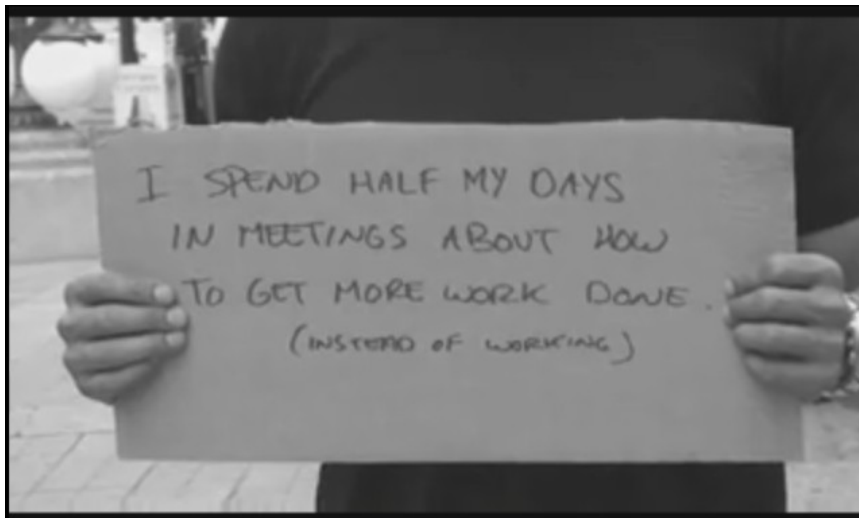 I SPEND HALF MY DAYS
IN MEETINGS ABOUT HOW
TO GET MORE WORK DONE.
(INSTEAD OF WORKING)